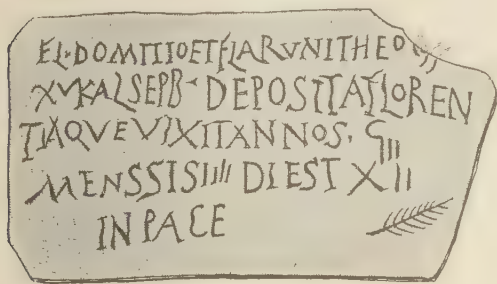 EL·DOMITIOETFLARVNITHEO
XVKALSEPB DEPOSITAFLOREN
TIAQVEVIXITANNOS. ϚIII
MENSSISIIIII DIEST XII
INPACE